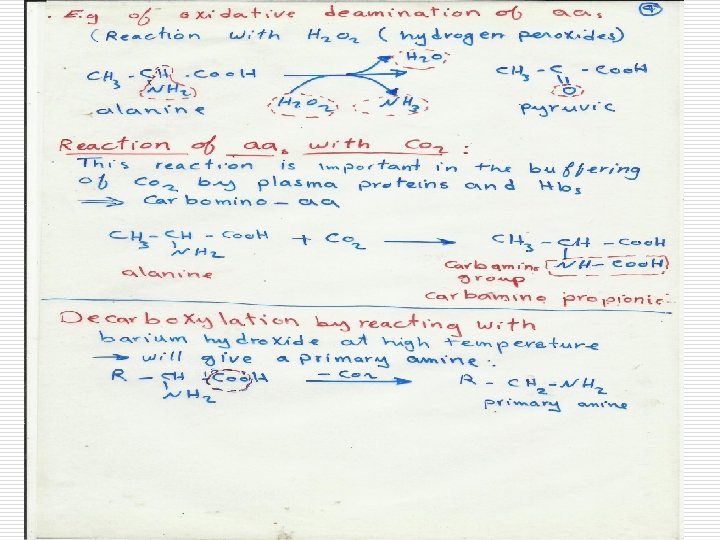 . E.g of oxidative deamination of aas
(Reaction with H2O2 (hydrogen peroxides)
H2O
CH3 - CH - COOH
NH2
CH3 - C - COOH
O
alanine
H2O2
NH3
pyruvic
Reaction of aas with CO2 :
This reaction is important in the buffering
of CO2 by plasma proteins and Hbs
⇒ Carbomino - aa
CH3 - CH - COOH + CO2 → CH3 - CH - COOH
NH2
NH - COOH
alanine
Carbamino
group
carbamino propionic
Decarboxylation by reacting with
barium hydroxide at high temperature
→ will give a primary amine :
R - CH - COOH
- CO2
R - CH2 - NH2
NH2
primary amine